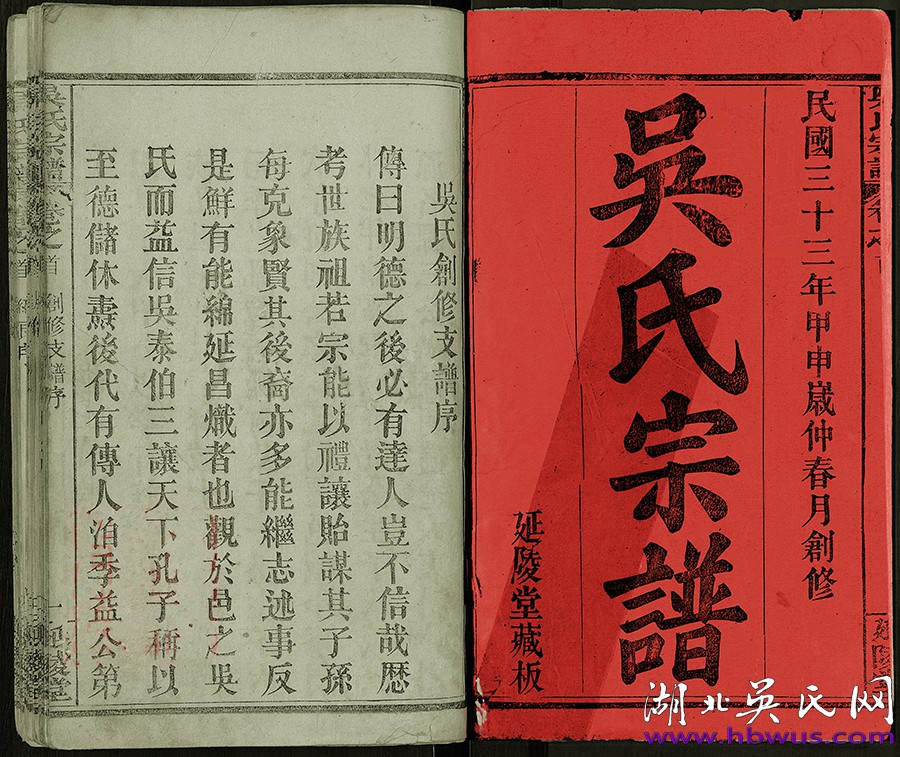 民國三十三年甲申歲仲春月創修
吳氏宗譜
延陵堂藏板
吳氏創修支譜序
傳曰明德之後必有達人豈不信哉歷
考世族祖若宗能以禮讓貽謀其子孫
每克象賢其後裔亦多能繼志述事反
是鮮有能綿延昌熾者也觀於邑之吳
氏而益信吳泰伯三讓天下孔子稱以
至德儲休燾後代有傳人洎季益公第
吳氏宗譜 卷之首 創修支譜序 一 延陵堂
湖北吳氏网
www.hbwus.com